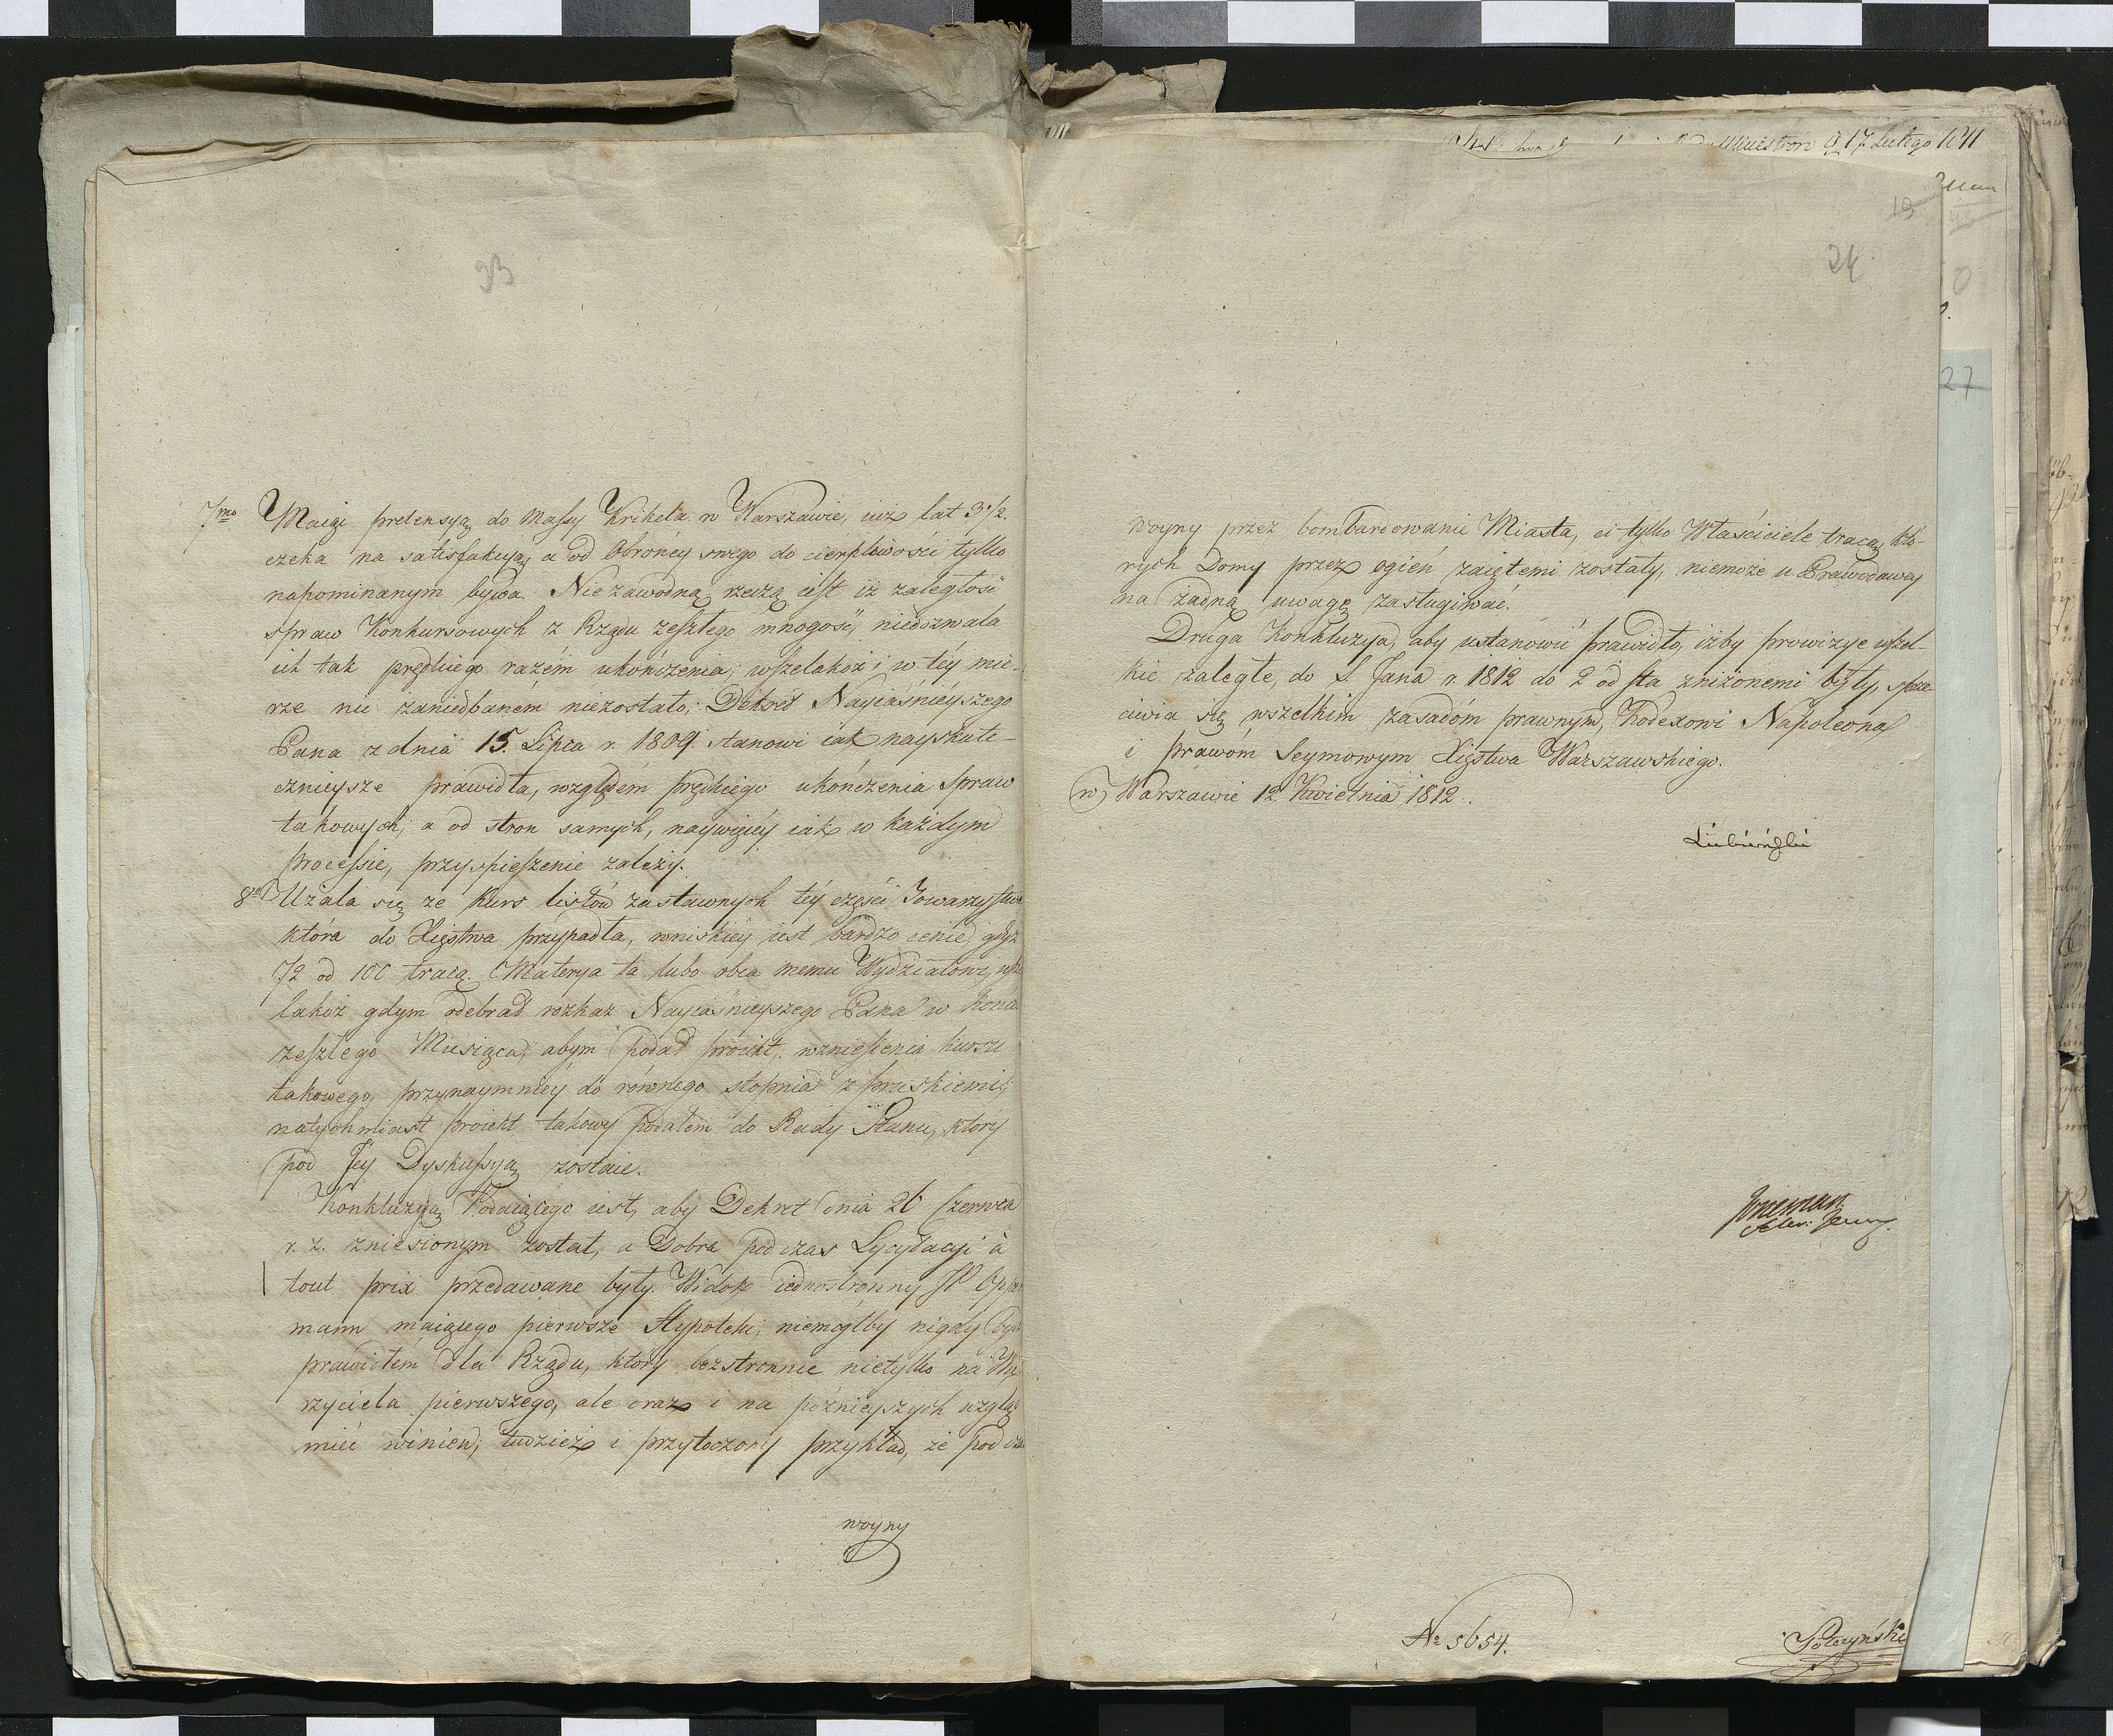 23
7mo Maiąc pretensyą do Massy Krikela w Warszawie, iuż lat 3 1/2.
czeka na satisfakcyą, a od Obrońcy swego do cierpliwości tylko
napominanym bywa. Niezawodną rzeczą iest iż zaległość
spraw Konkursowych z Rządu zeszłego mnogość, niedozwala
ich tak prędkiego razem ukończenia, wszelakoż i w téy mie-
rze nic zaniedbaném niezostało; Dekret Nayiaśnieyszego
Pana z dnia 15. Lipca r. 1809. stanowi iak nayskute-
cznieysze prawidła, względem prędkiego ukończenia spraw
takowych; a od stron samych, naywięcéy iak w każdym
processie, przyspieszenie zależy.
8vo Użala się że Kurs listów zastawnych téy części Towarzystwa
która do Xięstwa przypadła, w niskiéy iest bardzo cenie, gdyż
72 od 100 tracą. Materya ta lubo obca memu Wydziałowi, wsze
lakoż gdym odebrał rozkaz Nayiaśnieyszego Pana w końcu
zeszłego Miesiąca, abym podał proiekt, wzniesienia kursu
takowego, przynaymniéy do równego stopnia z pruskiemi;
natychmiast proiekt takowy podałem do Rady Stanu, który
pod Jey Dyskussyą zostaie.
Konkluzyą Podaiącego iest, aby Dekret dnia 26 Czerwca
r. z. zniesionym został, a Dobra podczas Lycytacyi à
tout prix przedawane były. Widok iednostronny JP Opper
mann maiącego pierwsze Hypoteki, niemógłby nigdy bydź
prawidłem dla Rządu, który bezstronnie nietylko na Wie
rzyciela pierwszego, ale oraz i na późnieyszych wzgląd
mieć winien; tudzież i przytoczony przykład, że podczas
woyny
Ministrów d 17 Lutego 1811
19
24
27
woyny przez bombardowanie Miasta, ci tylko Właściciele tracą, któ-
rych Domy przez ogień zaiętemi zostały, niemoże u Prawodawcy
na żadną uwagę zasługiwać.
Druga Konkluzya, aby ustanowić prawidło, iżby prowizye wszel-
kie zaległe, do S. Jana r. 1812 do 2 od sta zniżonemi były, sprze
ciwia się wszelkim zasadóm prawnym, Kodexowi Napoleona
i prawóm Seymowym Xięstwa Warszawskiego.
w Warszawie 12. Kwietnia 1812.
Łubieński
№ 5654.